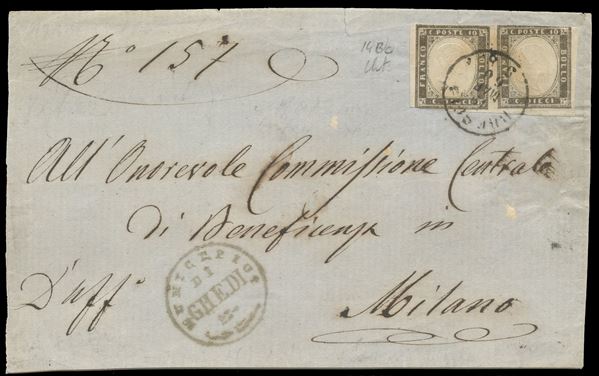 N.° 157
14Bb
C. POSTE 10
FRANCO
BOLLO
C. DIECI
C. POSTE 10
FRANCO
BOLLO
C. DIECI
All'Onorevole Commissione Centrale
di Beneficenza in
MUNICIPIO
DI
GHEDI
D'uff°
Milano